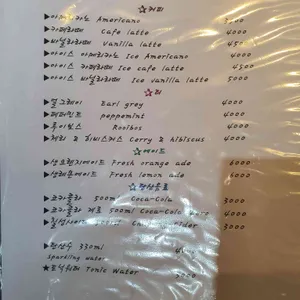 ☆커피
▶아메리카노 Americano
▶카페라떼 Cafe latte 4000
▶바닐라라떼 Vanilla latte
▶아이스 아메리카노 Ice Americano 4000
▶아이스 카페라떼 Ice cafe latte 4500
▶아이스 바닐라라떼 Ice vanilla latte 5000
☆티
▶얼그레이 Earl grey 4000
▶페퍼민트 peppemint 4000
▶루이보스 Rooibos 4000
▶체리 & 히비스커스 Cerry & hibiscus 4000
☆에이드
▶생오렌지에이드 Fresh orange ade 6000
▶생레몬에이드 Fresh lemon ade 6000
☆탄산음료
▶코카콜라 500m Coca-Cola 3000
▶코카콜라 제로 500ml Coca-Cola zero 4000
3000
▶탄산수 330ml
Sparkling water
★토닉워터 Tonic Water